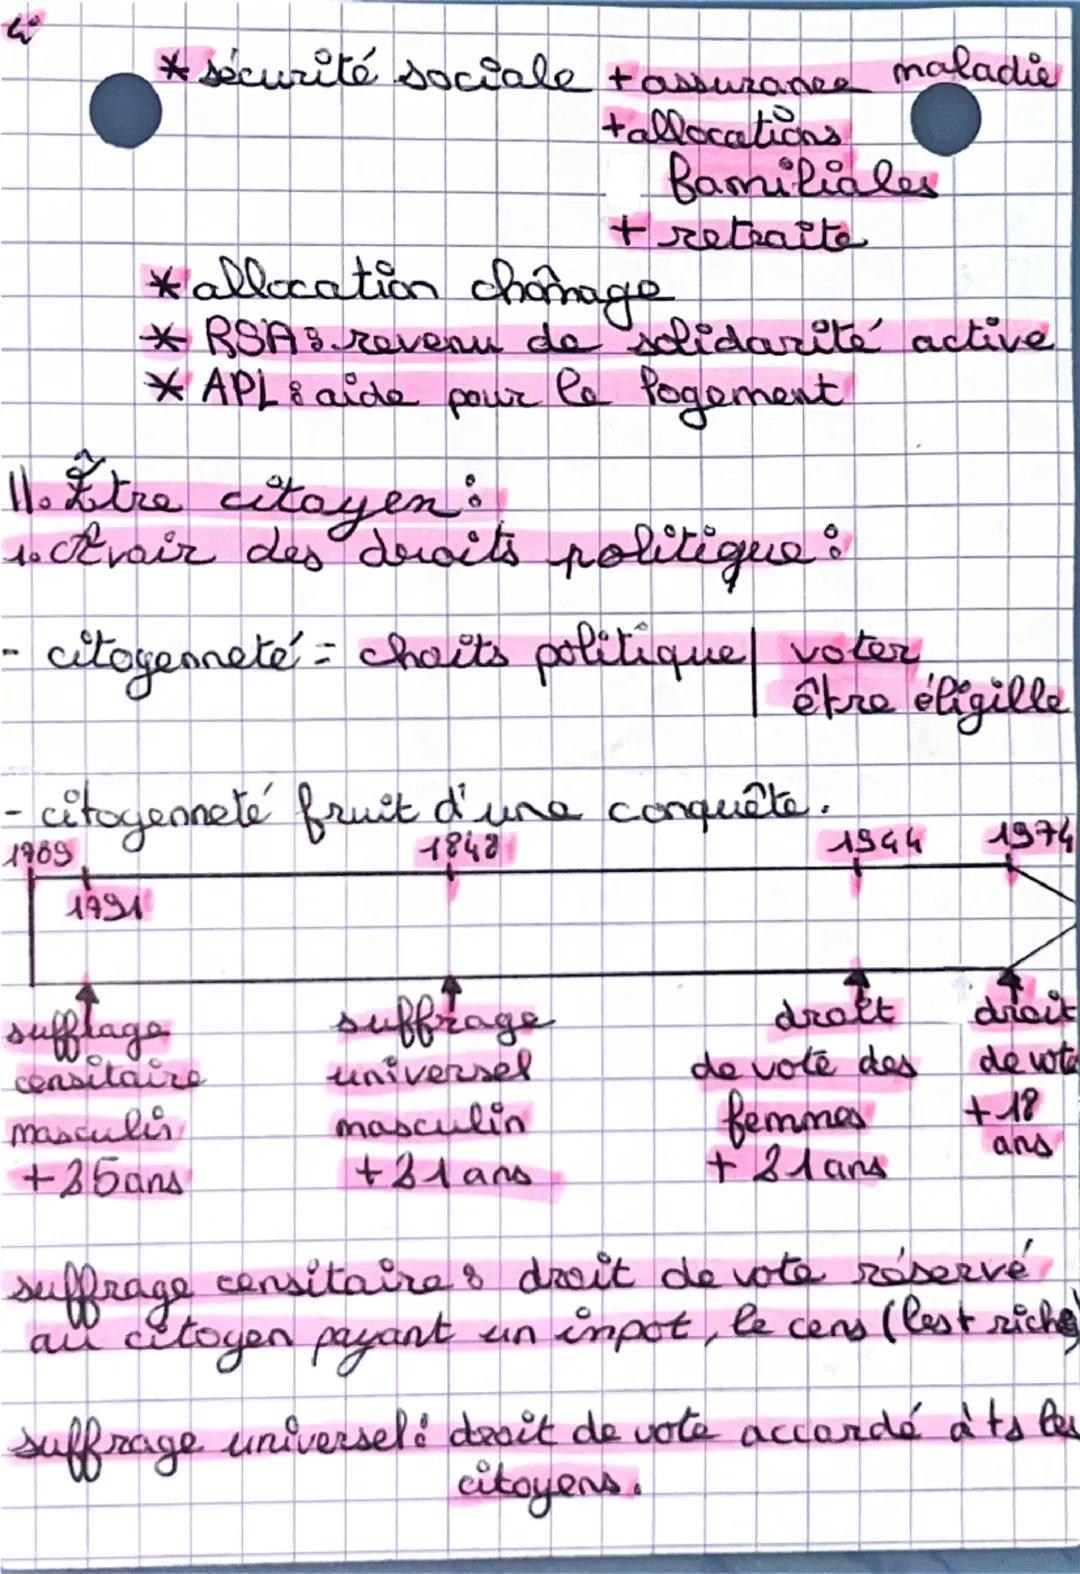 4°
* sécurité sociale + assurance maladie
+ allocations
familiales
+ retraite
* allocation chômage
* RSA : revenu de solidarité active
* APL : aide pour le logement
II. Être citoyen :
1. Avoir des droits politique :
- citoyenneté = choits politique | voter
être éligille
- citoyenneté fruit d'une conquête.
1789 1848 1944 1974
1791
suffrage suffrage droit droit
censitaire universel de vote des de vote
masculin masculin femmes + 18
+ 25 ans + 21 ans + 21 ans ans
suffrage censitaire : droit de vote réservé
au citoyen payant un inpot, le cens (les + riche)
suffrage universel : droit de vote accordé à ts les
citoyens.